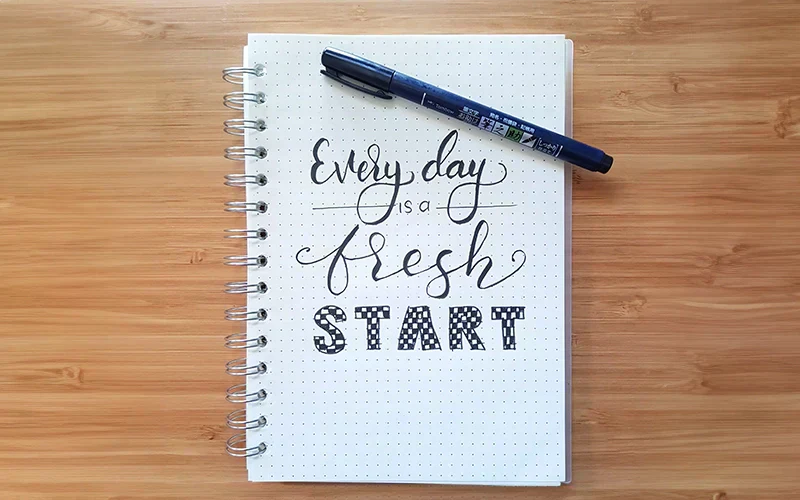 Tombow
Every day
is a
fresh
START